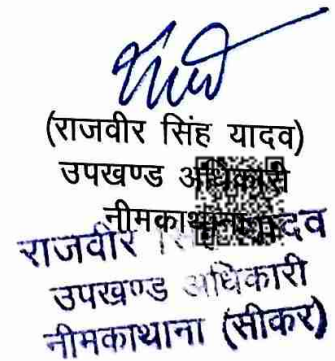 (राजवीर सिंह यादव)
उपखण्ड अधिकारी
नीमकाथाना
राजवीर यादव
उपखण्ड अधिकारी
नीमकाथाना (सीकर)